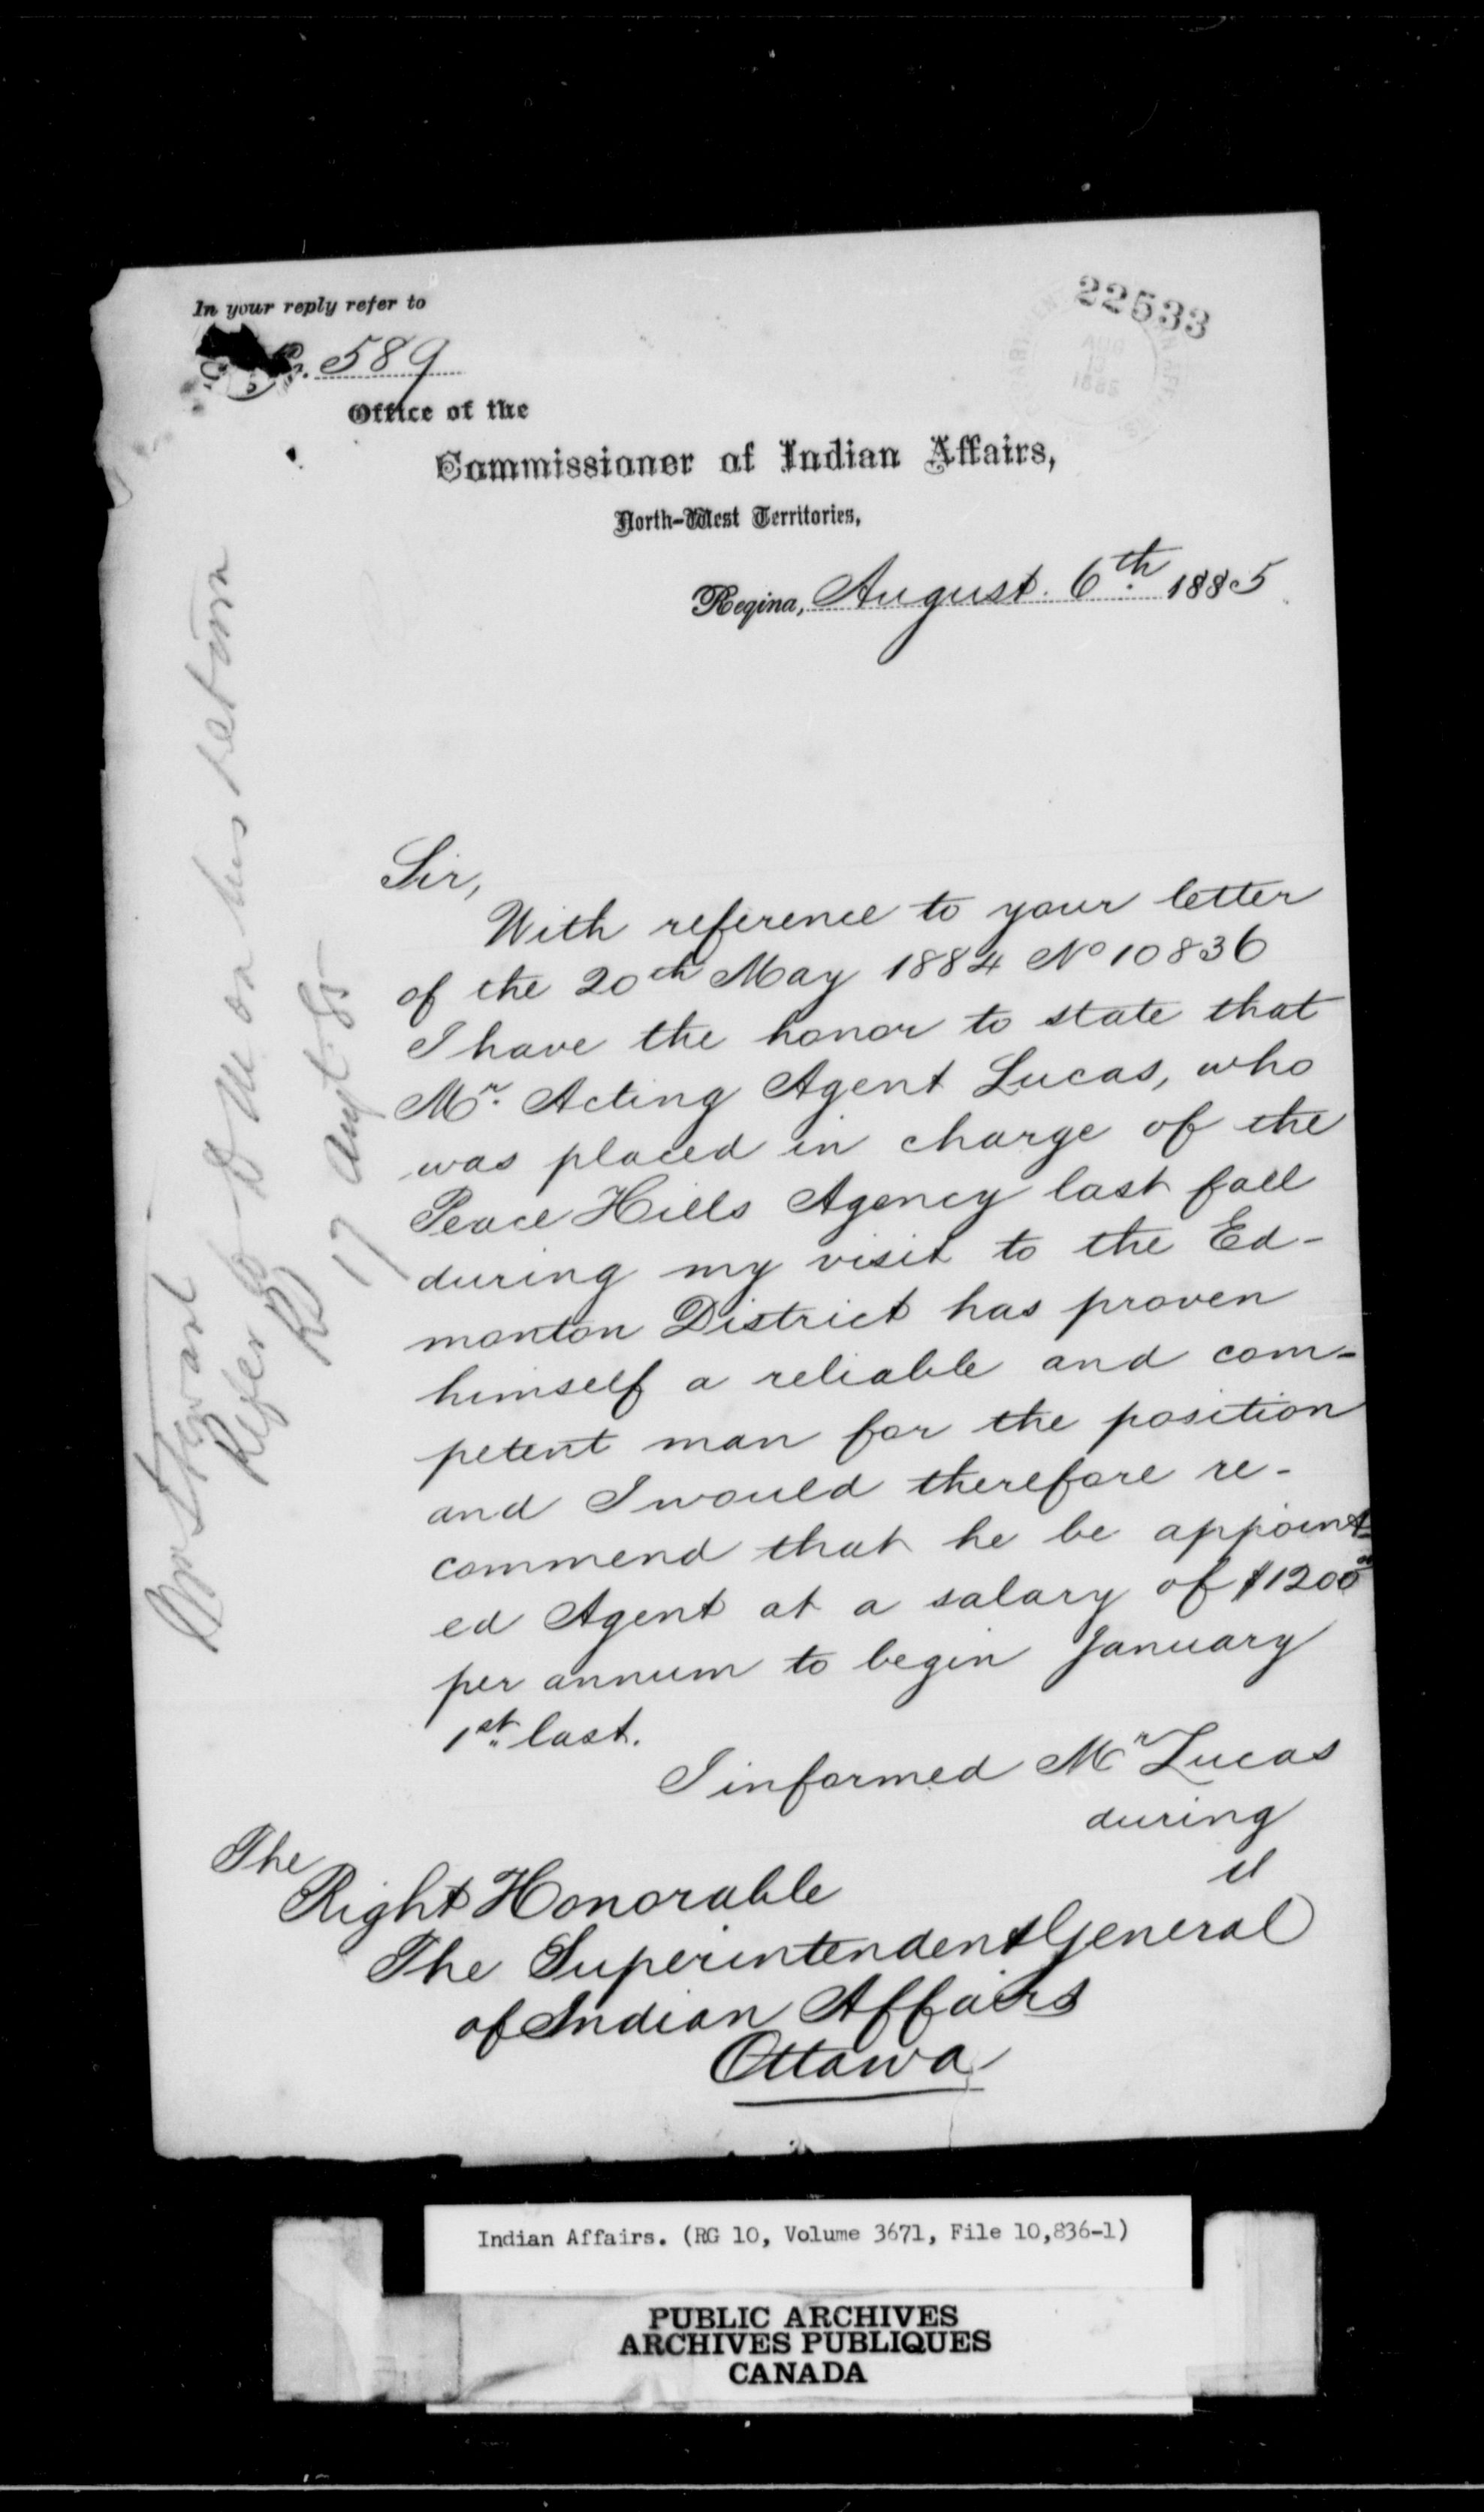 In your reply refer to
22533
589
AUG
1885
Office of the
Commissioner of Indian Affairs,
North-West Territories,
Regina, August 6th 1885
Sir,
With reference to your letter
of the 20th May 1884 No 10836
I have the honor to state that
Mr. Acting Agent Lucas, who
was placed in charge of the
Peace Hills Agency last fall
during my visit to the Ed-
monton District has proven
himself a reliable and com-
petent man for the position
and I would therefore re-
commend that he be appoint-
ed Agent at a salary of $1200
per annum to begin January
1st last.
I informed Mr Lucas
during
The
Right Honorable
The Superintendent General
of Indian Affairs
Ottawa
Mr Stewart
Refer to on his return
17 Augt 85
Indian Affairs. (RG 10, Volume 3671, File 10,836-1)
PUBLIC ARCHIVES
ARCHIVES PUBLIQUES
CANADA